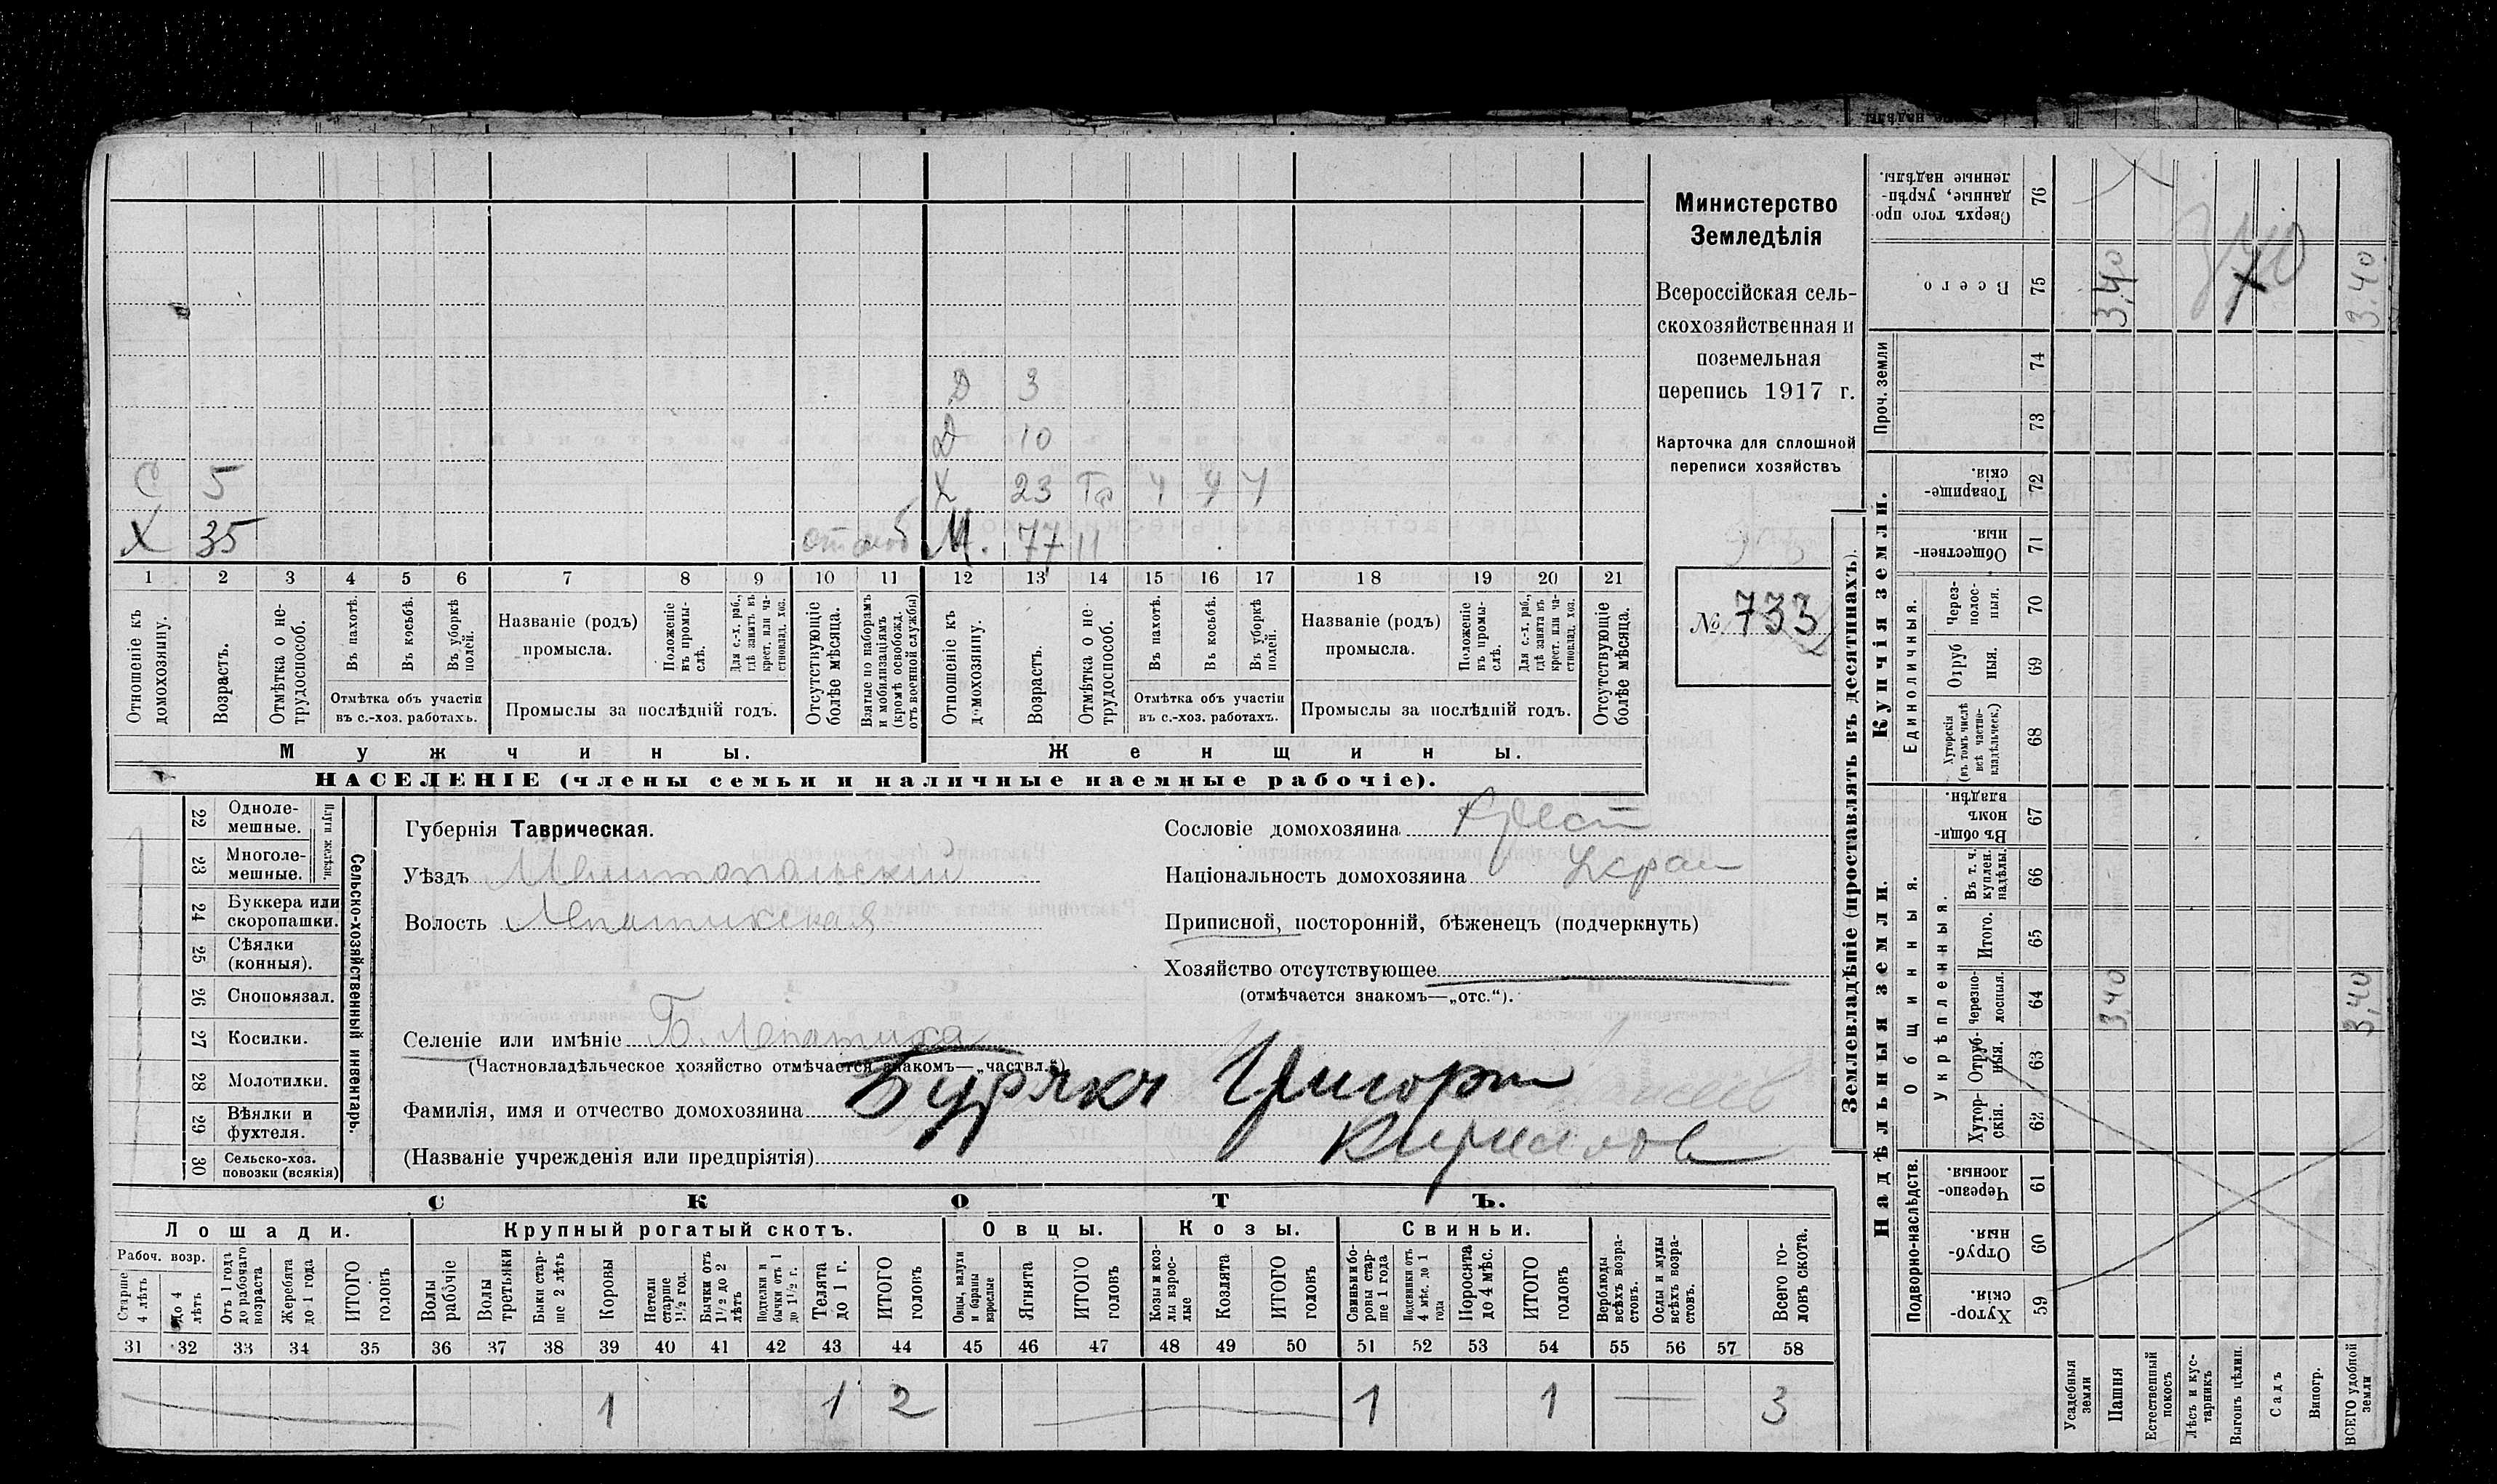 Министерство
Земледѣлія
Всероссійская сель-
скохозяйственная и
поземельная
перепись 1917 г.
Карточка для сплошной
переписи хозяйствъ
№ 733
Д 3
Д 10
С 5
Х 23 4 4 4
Х 35
М. 77
1 2 3 4 5 6 7 8 9 10 11 12 13 14 15 16 17 18 19 20 21
Отношеніе къ домохозяину.
Возрастъ.
Отмѣтка о не-трудоспособ.
Въ пахотѣ.
Въ косьбѣ.
Въ уборкѣ полей.
Отмѣтка объ участіи
въ с.-хоз. работахъ.
Названіе (родъ)
промысла.
Положеніе въ промы-слѣ.
Для с.-х. раб., гдѣ занятъ въ крест. или ча-стновлад. хоз.
Промыслы за послѣдній годъ.
Отсутствующіе болѣе мѣсяца.
Взятые по наборамъ и мобилизаціямъ (кромѣ освобожд. отъ военной службы)
Отношеніе къ домохозяину.
Возрастъ.
Отмѣтка о не-трудоспособ.
Въ пахотѣ.
Въ косьбѣ.
Въ уборкѣ полей.
Отмѣтка объ участіи
въ с.-хоз. работахъ.
Названіе (родъ)
промысла.
Положеніе въ промы-слѣ.
Для с.-х. раб., гдѣ занята въ крест. или ча-стновлад. хоз.
Промыслы за послѣдній годъ.
Отсутствующіе болѣе мѣсяца.
Мужчины.
Женщины.
НАСЕЛЕНІЕ (члены семьи и наличные наемные рабочіе).
Сельско-хозяйственный инвентарь.
Плуги желѣзн.
22 Одноле-мешные.
23 Многоле-мешные.
24 Буккера или скоропашки.
25 Сѣялки (конныя).
26 Сноповязал.
27 Косилки.
28 Молотилки.
29 Вѣялки и фухтеля.
30 Сельско-хоз. повозки (всякія)
Губернія Таврическая.
Уѣздъ Мелитопальскій
Волость Лепатихская
Селеніе или имѣніе Б. Лепатиха
(Частновладѣльческое хозяйство отмѣчается знакомъ—„частвл.“)
Фамилія, имя и отчество домохозяина Бурякъ Григорій
Кирилов
(Названіе учрежденія или предпріятія)
Сословіе домохозяина Крест
Національность домохозяина Украи
Приписной, посторонній, бѣженецъ (подчеркнуть)
Хозяйство отсутствующее
(отмѣчается знакомъ—„отс.“).
СКОТЪ.
Лошади. Крупный рогатый скотъ. Овцы. Козы. Свиньи.
Рабоч. возр.
Старше 4 лѣтъ
До 4 лѣтъ
Отъ 1 года до рабочаго возраста
Жеребята до 1 года
ИТОГО головъ
Волы рабочіе
Волы третьяки
Быки стар-ше 2 лѣтъ
Коровы
Нетели старше 1½ год.
Бычки отъ 1½ до 2 лѣтъ
Подтелки и бычки отъ 1 до 1½ г.
Телята до 1 г.
ИТОГО головъ
Овцы, валухи и бараны взрослые
Ягнята
ИТОГО головъ
Козы и коз-лы взрос-лые
Козлята
ИТОГО головъ
Свиньи и бо-ровы стар-ше 1 года
Подсвинки отъ 4 мѣс. до 1 года
Поросята до 4 мѣс.
ИТОГО головъ
Верблюды всѣхъ возра-стовъ.
Ослы и мулы всѣхъ возра-стовъ.
Всего го-ловъ скота.
31 32 33 34 35 36 37 38 39 40 41 42 43 44 45 46 47 48 49 50 51 52 53 54 55 56 57 58
1 1 2 1 1 3
Землевладѣніе (проставлять въ десятинахъ).
Сверхъ того про-данные, укрѣп-ленные надѣлы. 76
Всего 75 3,40 3.40
Проч. земли
74
73
Купчія земли.
Товарище-скія. 72
Обществен-ныя. 71
Единоличныя.
Через-полос-ныя. 70
Отруб-ныя. 69
Хуторскія (въ томъ числѣ всѣ частно-владѣльческ.) 68
Надѣльныя земли.
Общинныя.
Въ общин-номъ владѣн. 67
Укрѣпленныя.
Въ т. ч. куплен. надѣлы. 66
Итого. 65
Черезпо-лосныя. 64 3,40 3,40
Отруб-ныя. 63
Хутор-скія. 62
Подворно-наслѣдств.
Черезпо-лосныя. 61
Отруб-ныя. 60
Хутор-скія. 59
Усадебныя земли
Пашня
Естественный покосъ
Лѣсъ и кус-тарникъ
Выгонъ цѣлин.
Садъ
Виногр.
ВСЕГО удобной земли